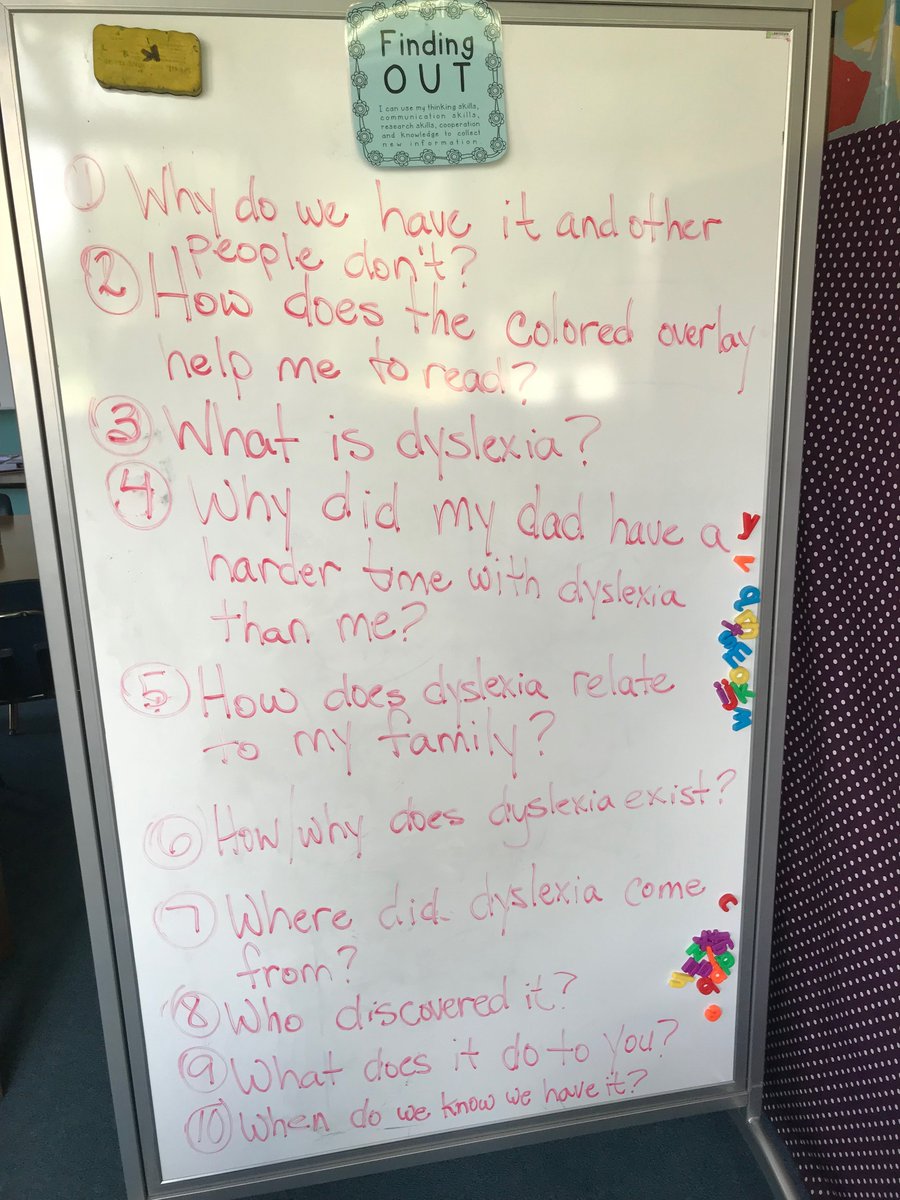 Finding
OUT
I can use my thinking skills,
communication skills,
research skills, cooperation
and knowledge to collect
new information.
① Why do we have it and other
people don't?
② How does the colored overlay
help me to read?
③ What is dyslexia?
④ Why did my dad have a
harder time with dyslexia
than me?
⑤ How does dyslexia relate
to my family?
⑥ How/why does dyslexia exist?
⑦ Where did dyslexia come
from?
⑧ Who discovered it?
⑨ What does it do to you?
⑩ When do we know we have it?